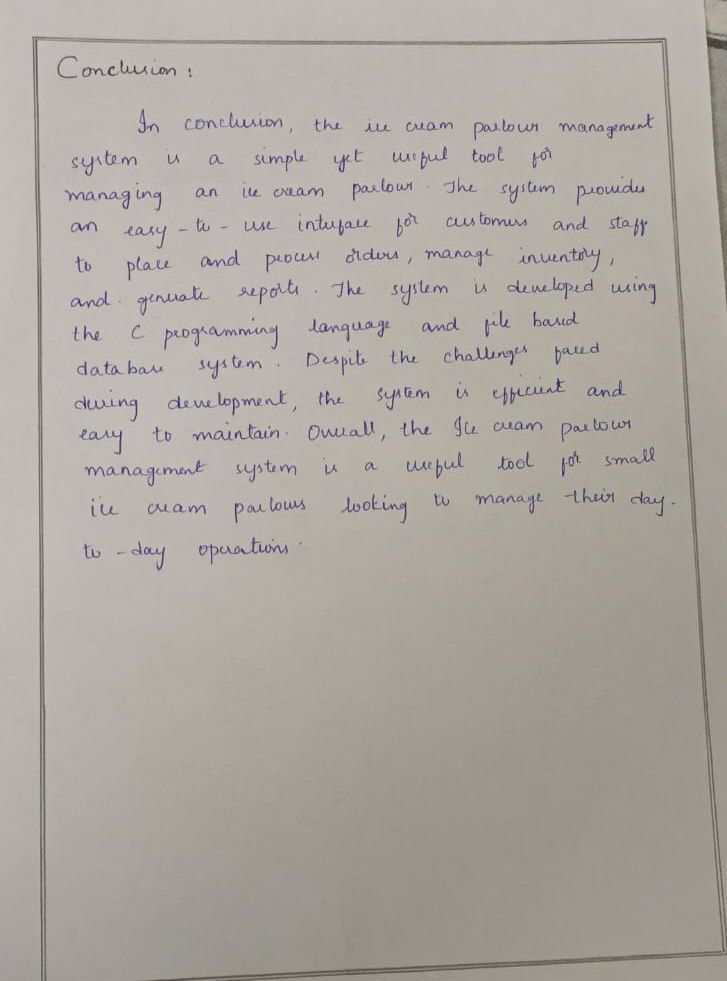 Conclusion :
In conclusion, the ice cream parlour management
system is a simple yet useful tool for
managing an ice cream parlour. The system provides
an easy-to-use interface for customers and staff
to place and process orders, manage inventory,
and. generate reports. The system is developed using
the C programming language and file based
database system. Despite the challenges faced
during development, the system is efficient and
easy to maintain. Overall, the Ice cream parlour
management system is a useful tool for small
ice cream parlours looking to manage their day-
to-day operations.